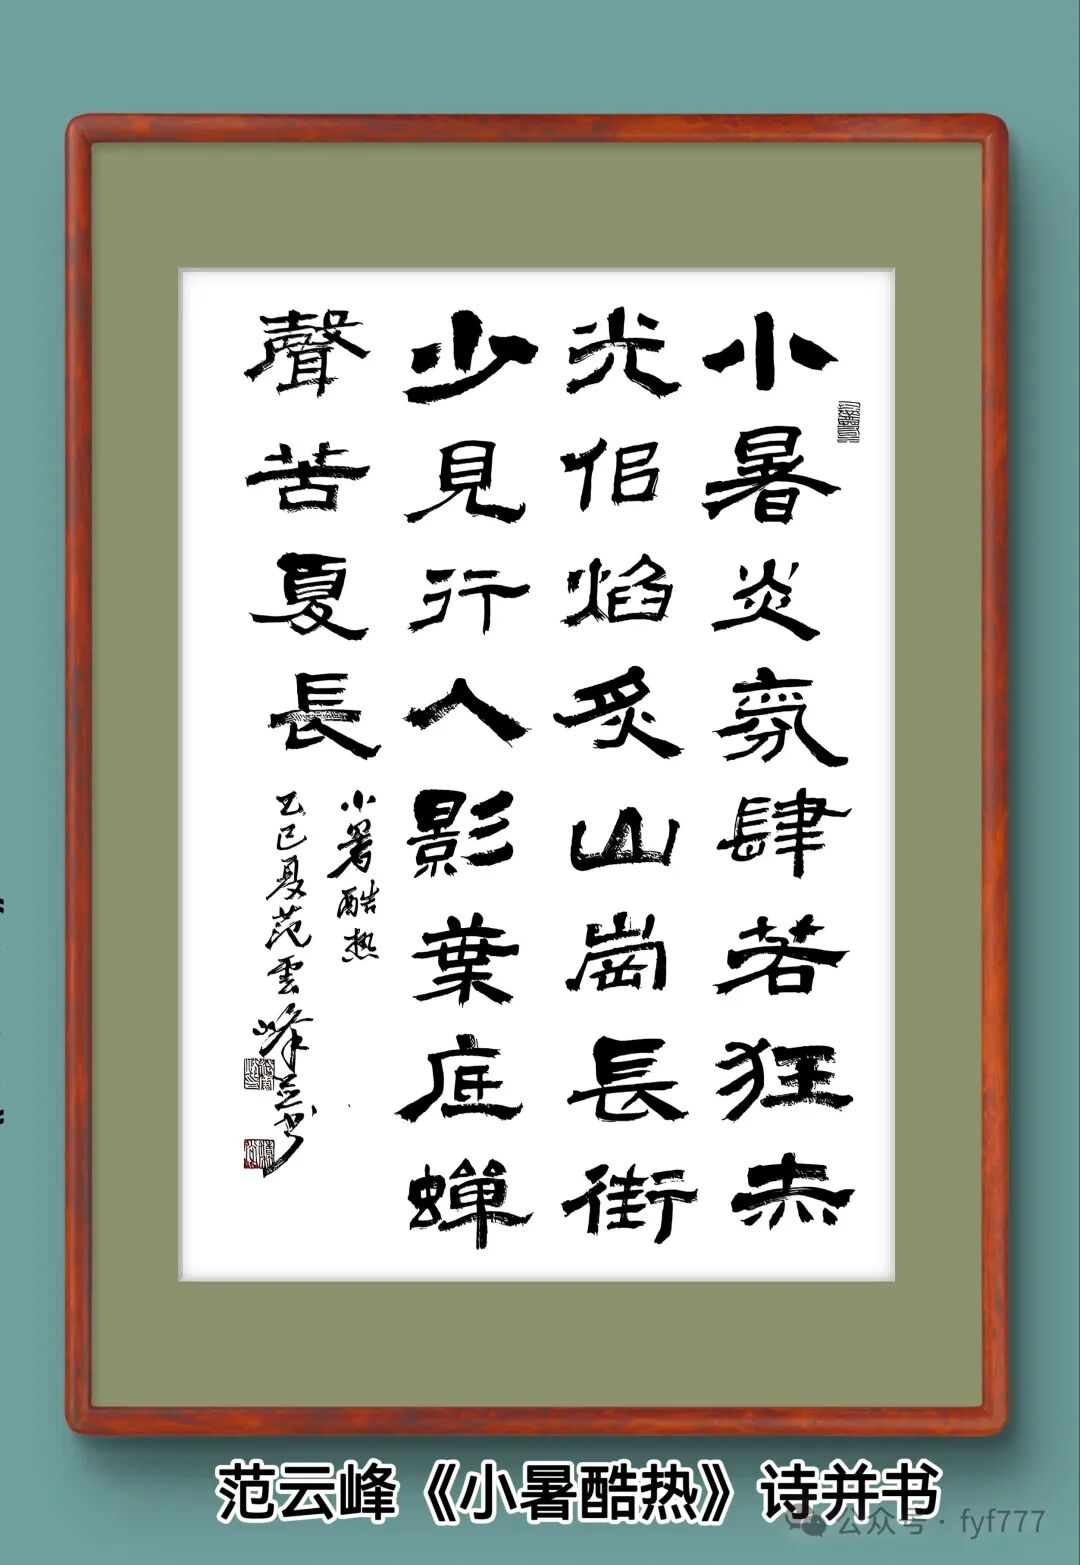 小暑炎氛肆若狂赤
光佀焰炙山崗長街
少見行人影葉底蟬
聲苦夏長
小暑酷热
乙巳夏范雲峰并书
范云峰《小暑酷热》诗并书
公众号 · fyf777